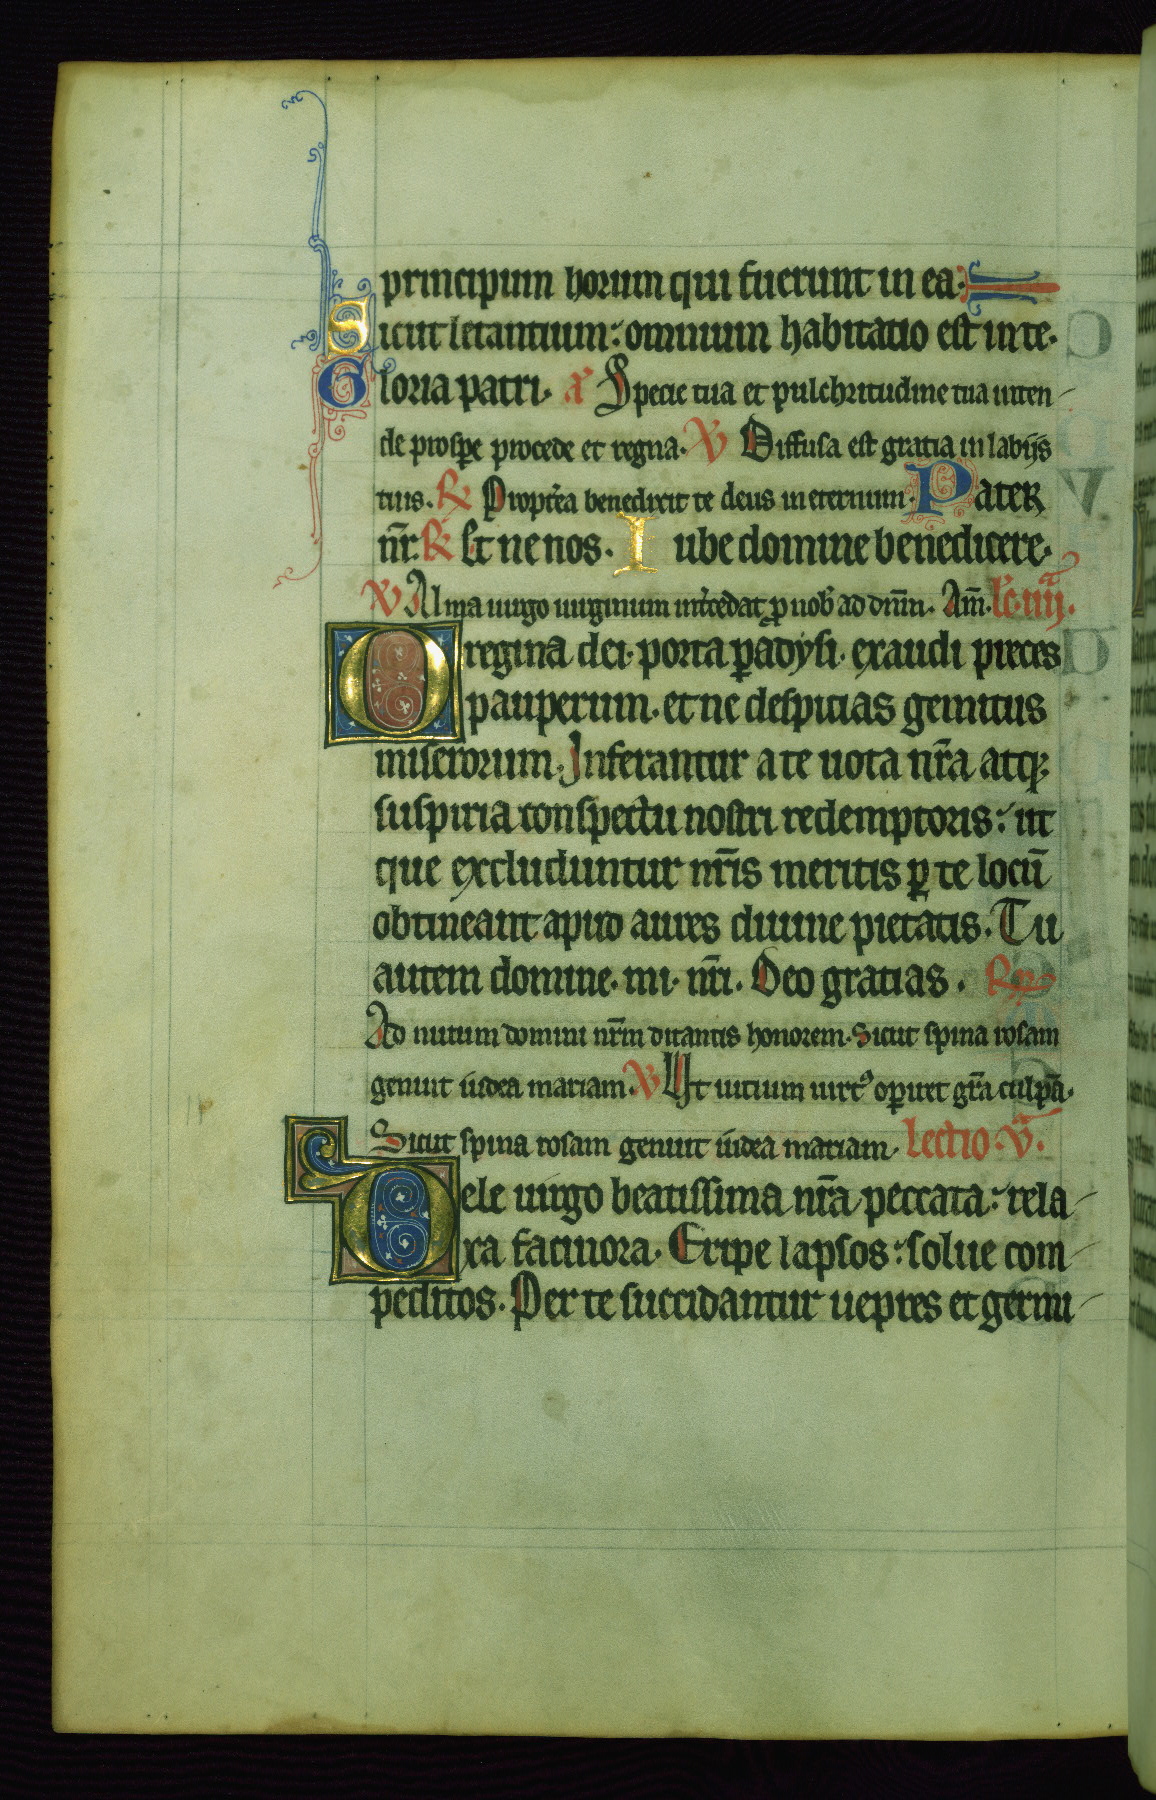 principum horum qui fuerunt in ea.
Sicut letantium: omnium habitatio est in te.
Gloria patri. a Specie tua et pulchritudine tua inten
de prospe procede et regna. V Diffusa est gratia in labijs
tuis. R Propterea benedixit te deus in eternum. Pater
nr̄. R Et ne nos. Iube domine benedicere.
V Alma uirgo uirginum int̾cedat ꝓ nob̾ ad dnm̄. Am̄. lc̄. iiij.ᵃ
O regina dei. porta ꝑadysi. exaudi preces
pauperum. et ne despicias gemitus
miserorum. Inferantur a te uota nr̄a atq;
suspiria conspectu nostri redemptoris: ut
que excluduntur nr̄is meritis ꝑ te locū
obtineant apud aures diuine pietatis. Tu
autem domine. mi. nr̄i. Deo gratias. R
Ad nutum domini nr̄m ditantis honorem. Sicut spina rosam
genuit iudea mariam. V Ut uicium uirtꝰ oꝑiret gr̄a culpā.
Sicut spina rosam genuit iudea mariam. Lectio. v.ᵃ
Dele uirgo beatissima nr̄a peccata: rela
xa facinora. Eripe lapsos: solue com
peditos. Per te succidantur uepres et germi